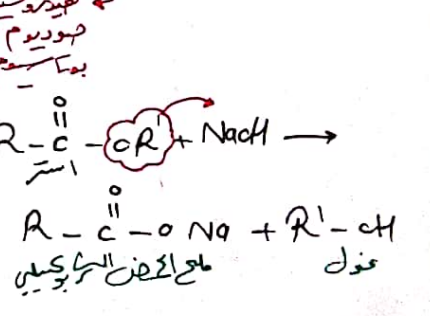 هيدروك
صوديوم
بوتاسيوم
O
R - C - OR' + NaOH ⟶
استر
O
R - C - O Na + R' - OH
ملح الحمض الكربوكسيلي
غول